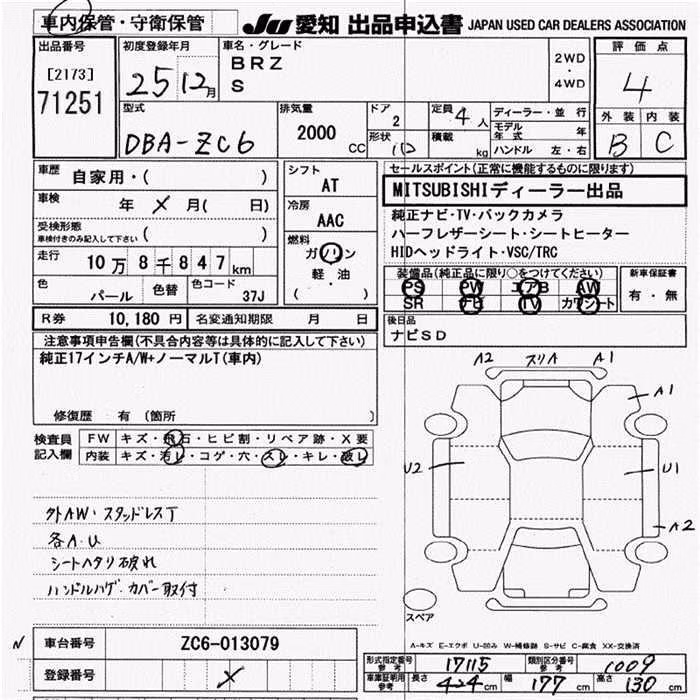 車内保管・守衛保管
JU 愛知 出品申込書 JAPAN USED CAR DEALERS ASSOCIATION
出品番号
[2173]
71251
初度登録年月
25 12月
車名・グレード
BRZ
S
2WD
・
4WD
評価点
4
外装 内装
B C
型式
DBA-ZC6
排気量
2000
CC
ドア
2
形状
定員 4 人
積載 kg
ディーラー・並行
モデル年式 年
ハンドル 左・右
車歴
自家用・( )
車検
年 × 月( 日)
受検形態
車検付きのみ記入して下さい ( )
走行
10万8千847km
色
パール
色替
色コード
37J
シフト
AT
冷房
AAC
燃料
ガソリン
軽・油
( )
R券 10,180 円 名変通知期限 月 日
セールスポイント(正常に機能するものに限ります)
MITSUBISHIディーラー出品
純正ナビ・TV・バックカメラ
ハーフレザーシート・シートヒーター
HIDヘッドライト・VSC/TRC
装備品(純正品に限り○をつけてください)
PS PW エアB AW
SR ナビ TV カワシート
新車保証書
有・無
後日品
ナビSD
注意事項申告欄(不具合内容等は具体的に記入して下さい)
純正17インチA/W+ノーマルT(車内)
修復歴 有 (箇所 )
検査員記入欄
FW キズ・飛石・ヒビ割・リペア跡・X要
内装 キズ・汚レ・コゲ・穴・スレ・キレ・破レ
外AW・スタッドレスT
各A.U
シートヘタリ破れ
ハンドルハゲ・カバー取付
A2 スリA A1
A1
U2
U1
A2
スペア
A-キズ E-エクボ U-凹み W-補修跡 S-サビ C-腐食 XX-交換済
N
車台番号 ZC6-013079
登録番号 ×
形式指定番号 参考 17115
類別区分番号 参考 1009
車庫証明用参考 長さ 424cm 幅 177cm 高さ 130cm